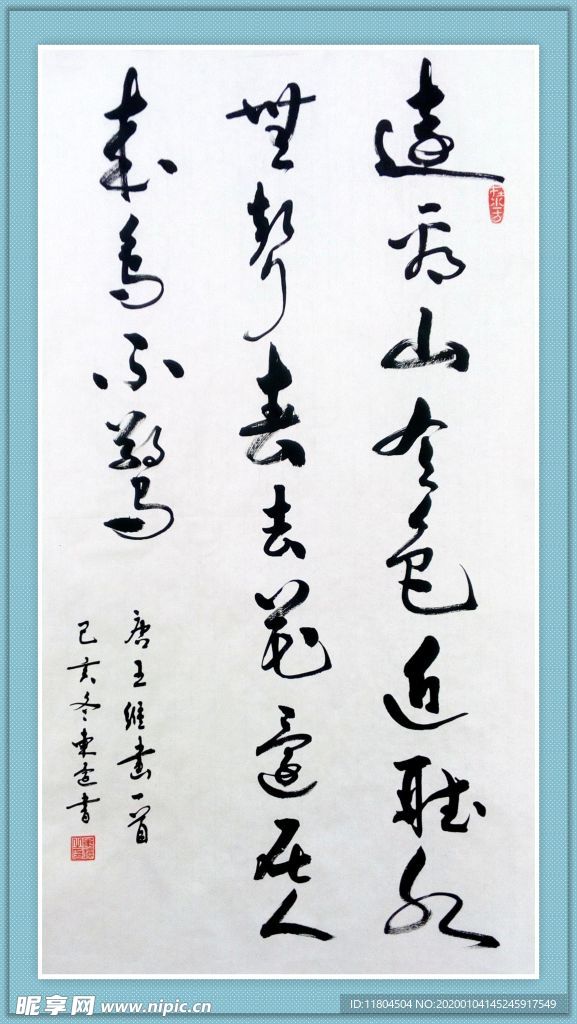 遠看山有色近聽水
無聲春去花還在人
來鳥不驚
唐王維畫一首
己亥冬東書
昵享网 www.nipic.cn
ID:11804504 NO:20200104145245917549